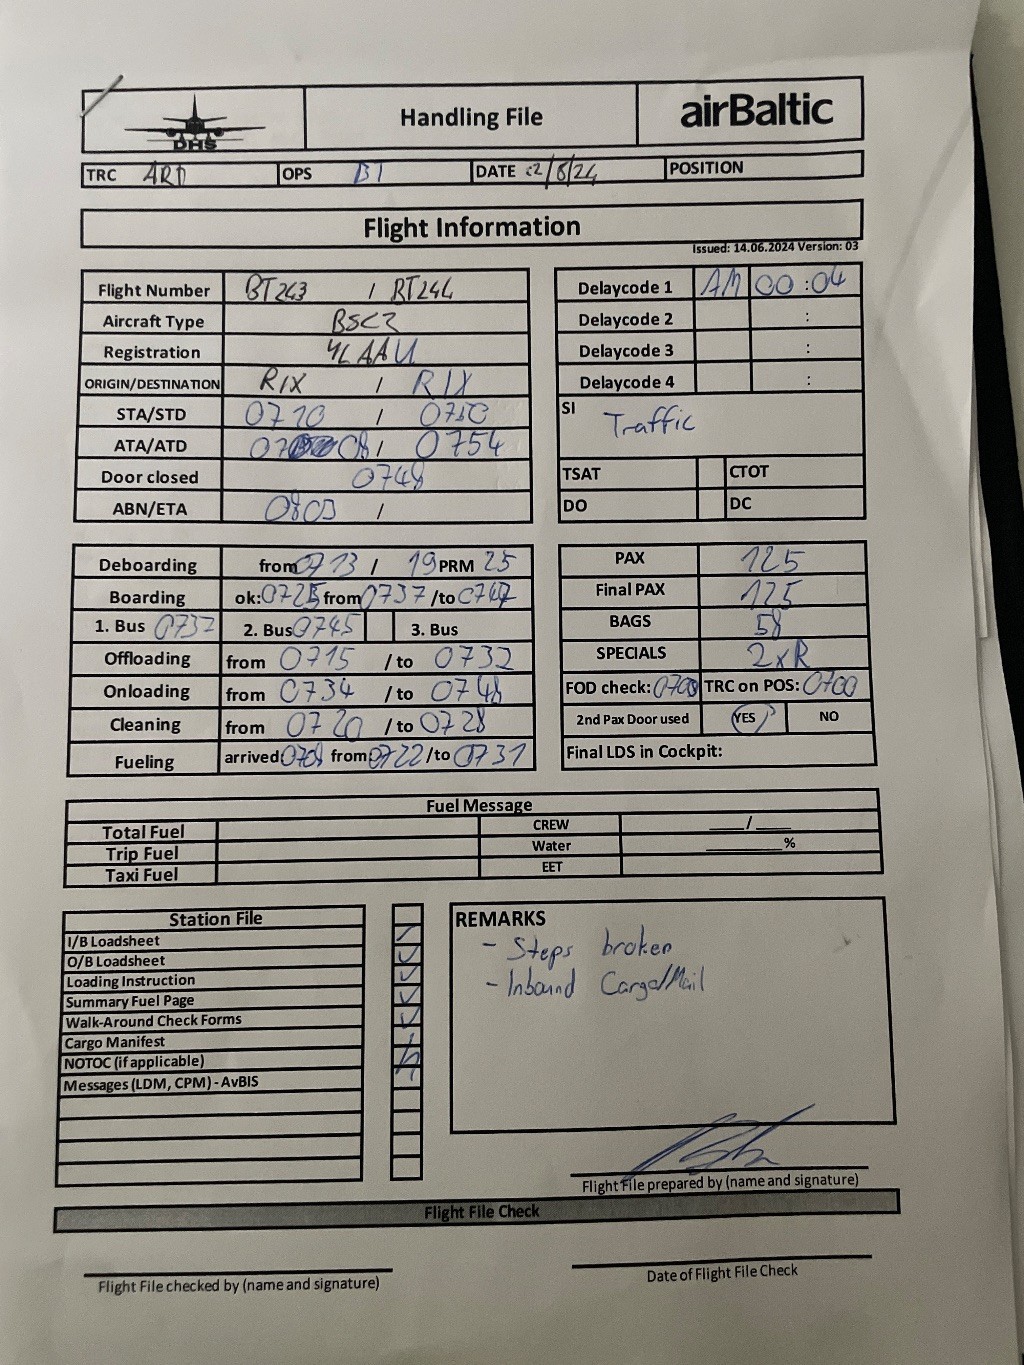 DHS Handling File airBaltic
TRC ARD OPS BT DATE 2/8/24 POSITION
Flight Information
Issued: 14.06.2024 Version: 03
Flight Number BT243 / BT244
Aircraft Type BSC3
Registration YLAAU
ORIGIN/DESTINATION RIX / RIX
STA/STD 0710 / 0750
ATA/ATD 0708 / 0754
Door closed 0748
ABN/ETA 0803 /
Delaycode 1 AM 00:04
Delaycode 2 :
Delaycode 3 :
Delaycode 4 :
SI Traffic
TSAT CTOT
DO DC
Deboarding from 0713 / 19 PRM 25
Boarding ok: 0725 from 0737 /to 0747
1. Bus 0737 2. Bus 0745 3. Bus
Offloading from 0715 /to 0732
Onloading from 0734 /to 0748
Cleaning from 0720 /to 0728
Fueling arrived 0708 from 0722 /to 0731
PAX 125
Final PAX 125
BAGS 58
SPECIALS 2xR
FOD check: 0700 TRC on POS: 0700
2nd Pax Door used YES NO
Final LDS in Cockpit:
Fuel Message
Total Fuel CREW ____/____
Trip Fuel Water ________%
Taxi Fuel EET
Station File
I/B Loadsheet
O/B Loadsheet
Loading Instruction
Summary Fuel Page
Walk-Around Check Forms
Cargo Manifest
NOTOC (if applicable)
Messages (LDM, CPM) - AvBIS
REMARKS
- Steps broken
- Inbound Cargo/Mail
Flight File prepared by (name and signature)
Flight File Check
Flight File checked by (name and signature)
Date of Flight File Check